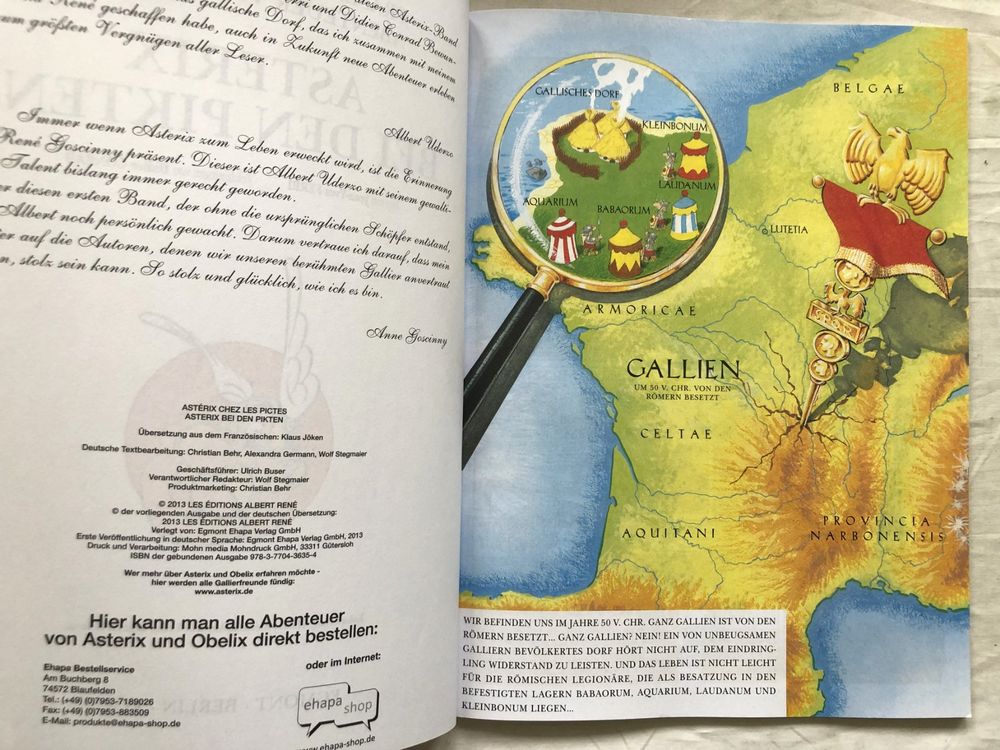 diesen Asterix-Band
rri und Didier Conrad Bewun-
s gallische Dorf, das ich zusammen mit meinem
René geschaffen habe, auch in Zukunft neue Abenteuer erleben
um größten Vergnügen aller Leser.
Albert Uderzo
Immer wenn Asterix zum Leben erweckt wird, ist die Erinnerung
René Goscinny präsent. Dieser ist Albert Uderzo mit seinem gewalti-
Talent bislang immer gerecht geworden.
er diesen ersten Band, der ohne die ursprünglichen Schöpfer entstand,
Albert noch persönlich gewacht. Darum vertraue ich darauf, dass mein
er auf die Autoren, denen wir unseren berühmten Gallier anvertraut
n, stolz sein kann. So stolz und glücklich, wie ich es bin.
Anne Goscinny
ASTÉRIX CHEZ LES PICTES
ASTERIX BEI DEN PIKTEN
Übersetzung aus dem Französischen: Klaus Jöken
Deutsche Textbearbeitung: Christian Behr, Alexandra Germann, Wolf Stegmaier
Geschäftsführer: Ulrich Buser
Verantwortlicher Redakteur: Wolf Stegmaier
Produktmarketing: Christian Behr
© 2013 LES ÉDITIONS ALBERT RENÉ
© der vorliegenden Ausgabe und der deutschen Übersetzung:
2013 LES ÉDITIONS ALBERT RENÉ
Verlegt von: Egmont Ehapa Verlag GmbH
Erste Veröffentlichung in deutscher Sprache: Egmont Ehapa Verlag GmbH, 2013
Druck und Verarbeitung: Mohn media Mohndruck GmbH, 33311 Gütersloh
ISBN der gebundenen Ausgabe 978-3-7704-3635-4
Wer mehr über Asterix und Obelix erfahren möchte -
hier werden alle Gallierfreunde fündig:
www.asterix.de
Hier kann man alle Abenteuer
von Asterix und Obelix direkt bestellen:
Ehapa Bestellservice
Am Buchberg 8
74572 Blaufelden
Tel.: (+49) (0)7953-7189026
Fax: (+49) (0)7953-883509
E-Mail: produkte@ehapa-shop.de
oder im Internet:
ehapa shop
www.ehapa-shop.de
GALLISCHES DORF
KLEINBONUM
LAUDANUM
AQUARIUM
BABAORUM
BELGAE
LUTETIA
SPQR
ARMORICAE
GALLIEN
UM 50 V. CHR. VON DEN
RÖMERN BESETZT
CELTAE
AQUITANI
PROVINCIA
NARBONENSIS
WIR BEFINDEN UNS IM JAHRE 50 V. CHR. GANZ GALLIEN IST VON DEN
RÖMERN BESETZT... GANZ GALLIEN? NEIN! EIN VON UNBEUGSAMEN
GALLIERN BEVÖLKERTES DORF HÖRT NICHT AUF, DEM EINDRING-
LING WIDERSTAND ZU LEISTEN. UND DAS LEBEN IST NICHT LEICHT
FÜR DIE RÖMISCHEN LEGIONÄRE, DIE ALS BESATZUNG IN DEN
BEFESTIGTEN LAGERN BABAORUM, AQUARIUM, LAUDANUM UND
KLEINBONUM LIEGEN...